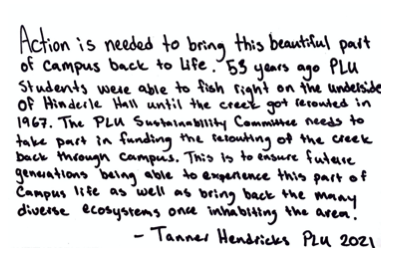 Action is needed to bring this beautiful part
of campus back to life. 53 years ago PLU
Students were able to fish right on the underside
of Hinderle Hall until the creek got rerouted in
1967. The PLU Sustainability Committee needs to
take part in funding the rerouting of the creek
back through campus. This is to ensure future
generations being able to experience this part of
Campus life as well as bring back the many
diverse ecosystems once inhabiting the area.
- Tanner Hendricks PLU 2021